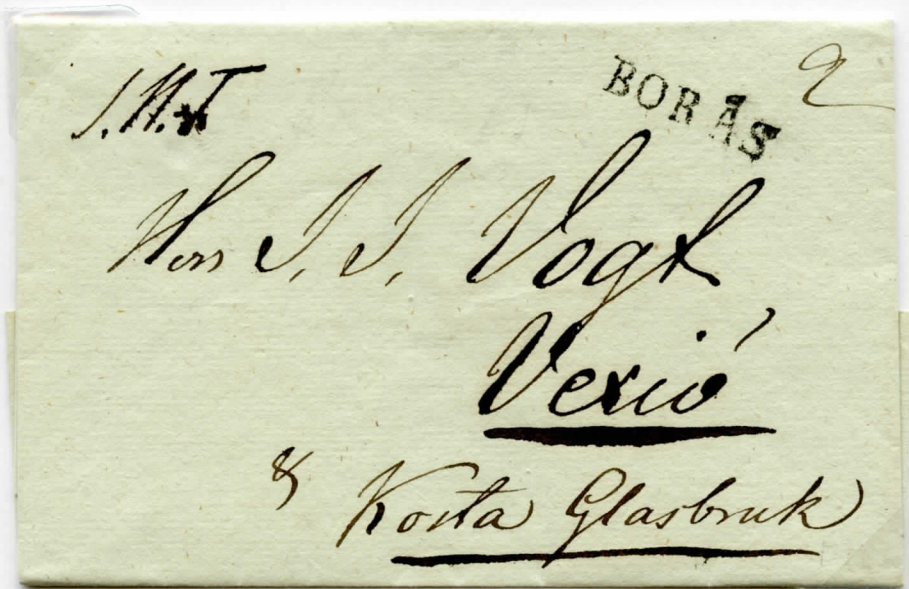 BORÅS
2
Herr J. J. Vogt
Vexió
& Kosta Glasbruk